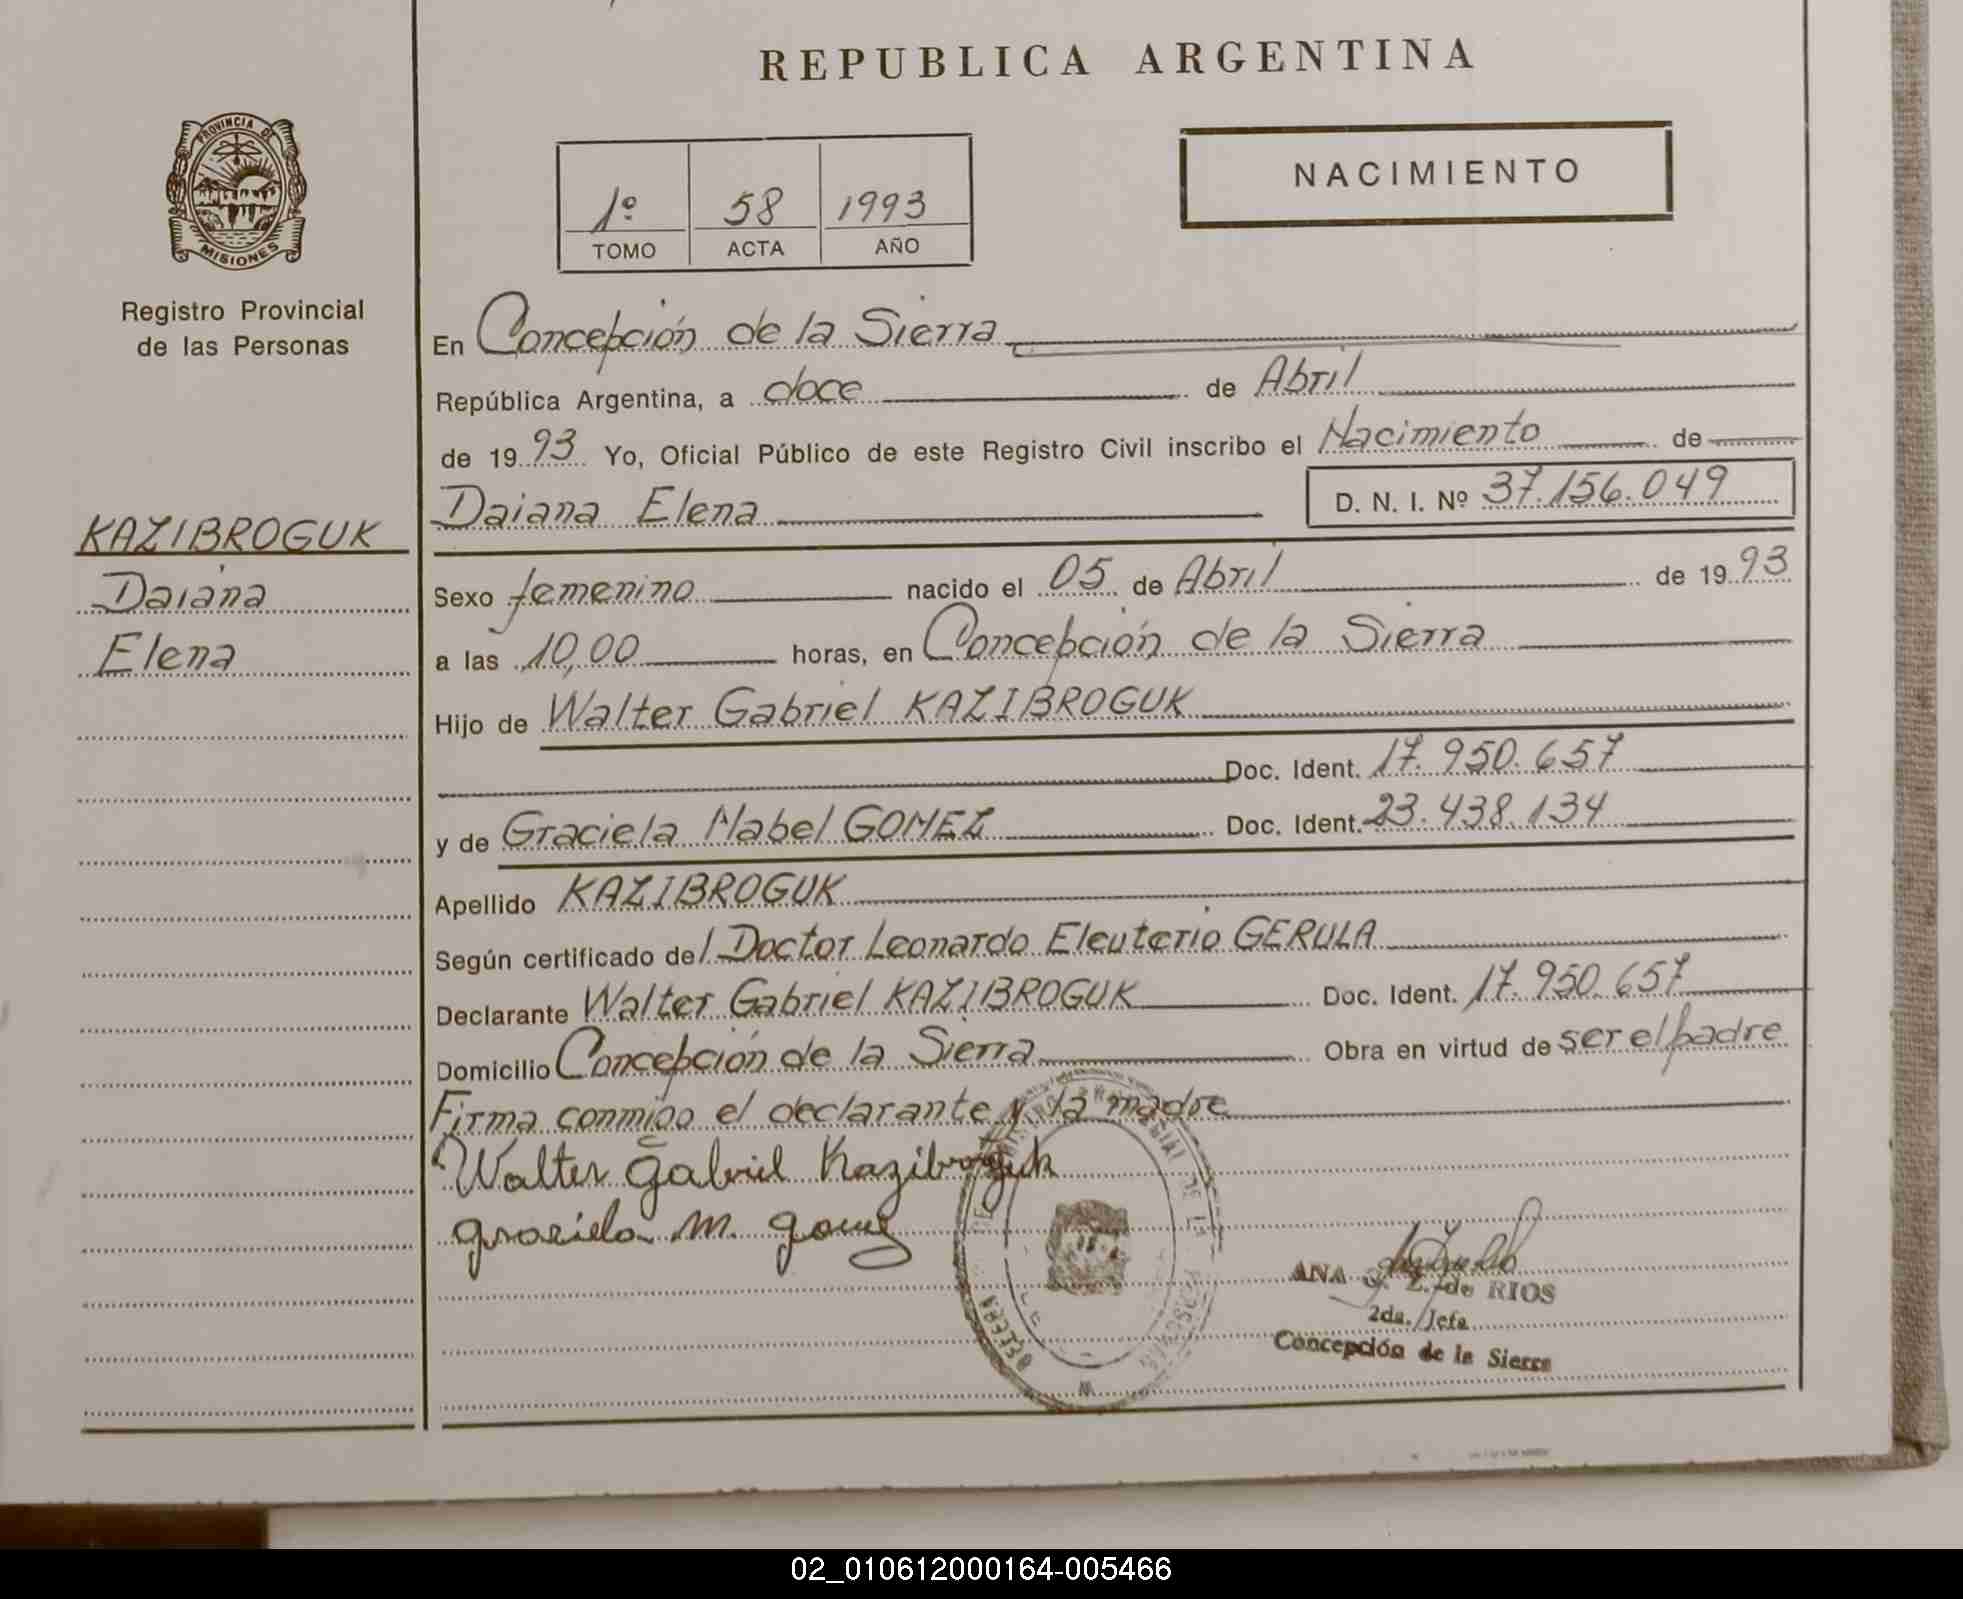 REPUBLICA ARGENTINA
PROVINCIA DE
MISIONES
Registro Provincial
de las Personas
1º 58 1993
TOMO ACTA AÑO
NACIMIENTO
En Concepción de la Sierra
República Argentina, a doce de Abril
de 19 93 Yo, Oficial Público de este Registro Civil inscribo el Nacimiento de
Daiana Elena D. N. I. Nº 37.156.049
KAZIBROGUK
Daiana
Elena
Sexo femenino nacido el 05 de Abril de 19 93
a las 10,00 horas, en Concepción de la Sierra
Hijo de Walter Gabriel KAZIBROGUK
Doc. Ident. 17.950.657
y de Graciela Mabel GOMEZ Doc. Ident. 23.438.134
Apellido KAZIBROGUK
Según certificado del Doctor Leonardo Eleuterio GERULA
Declarante Walter Gabriel KAZIBROGUK Doc. Ident. 17.950.657
Domicilio Concepción de la Sierra Obra en virtud de ser el padre
Firma conmigo el declarante y la madre
Walter Gabriel Kazibroguk
Graciela M. Gomez
ANA de RIOS
2da. Jefa
Concepción de la Sierra
02_010612000164-005466